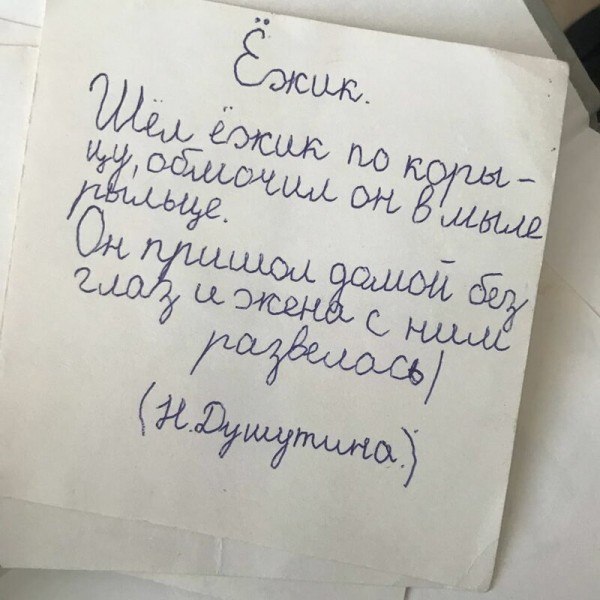 Ёжик.
Шёл ёжик по коры-
цу, обмочил он в мыле
рыльце.
Он пришол домой без
глаз и жена с ним
развелась!
(Н. Душутина.)